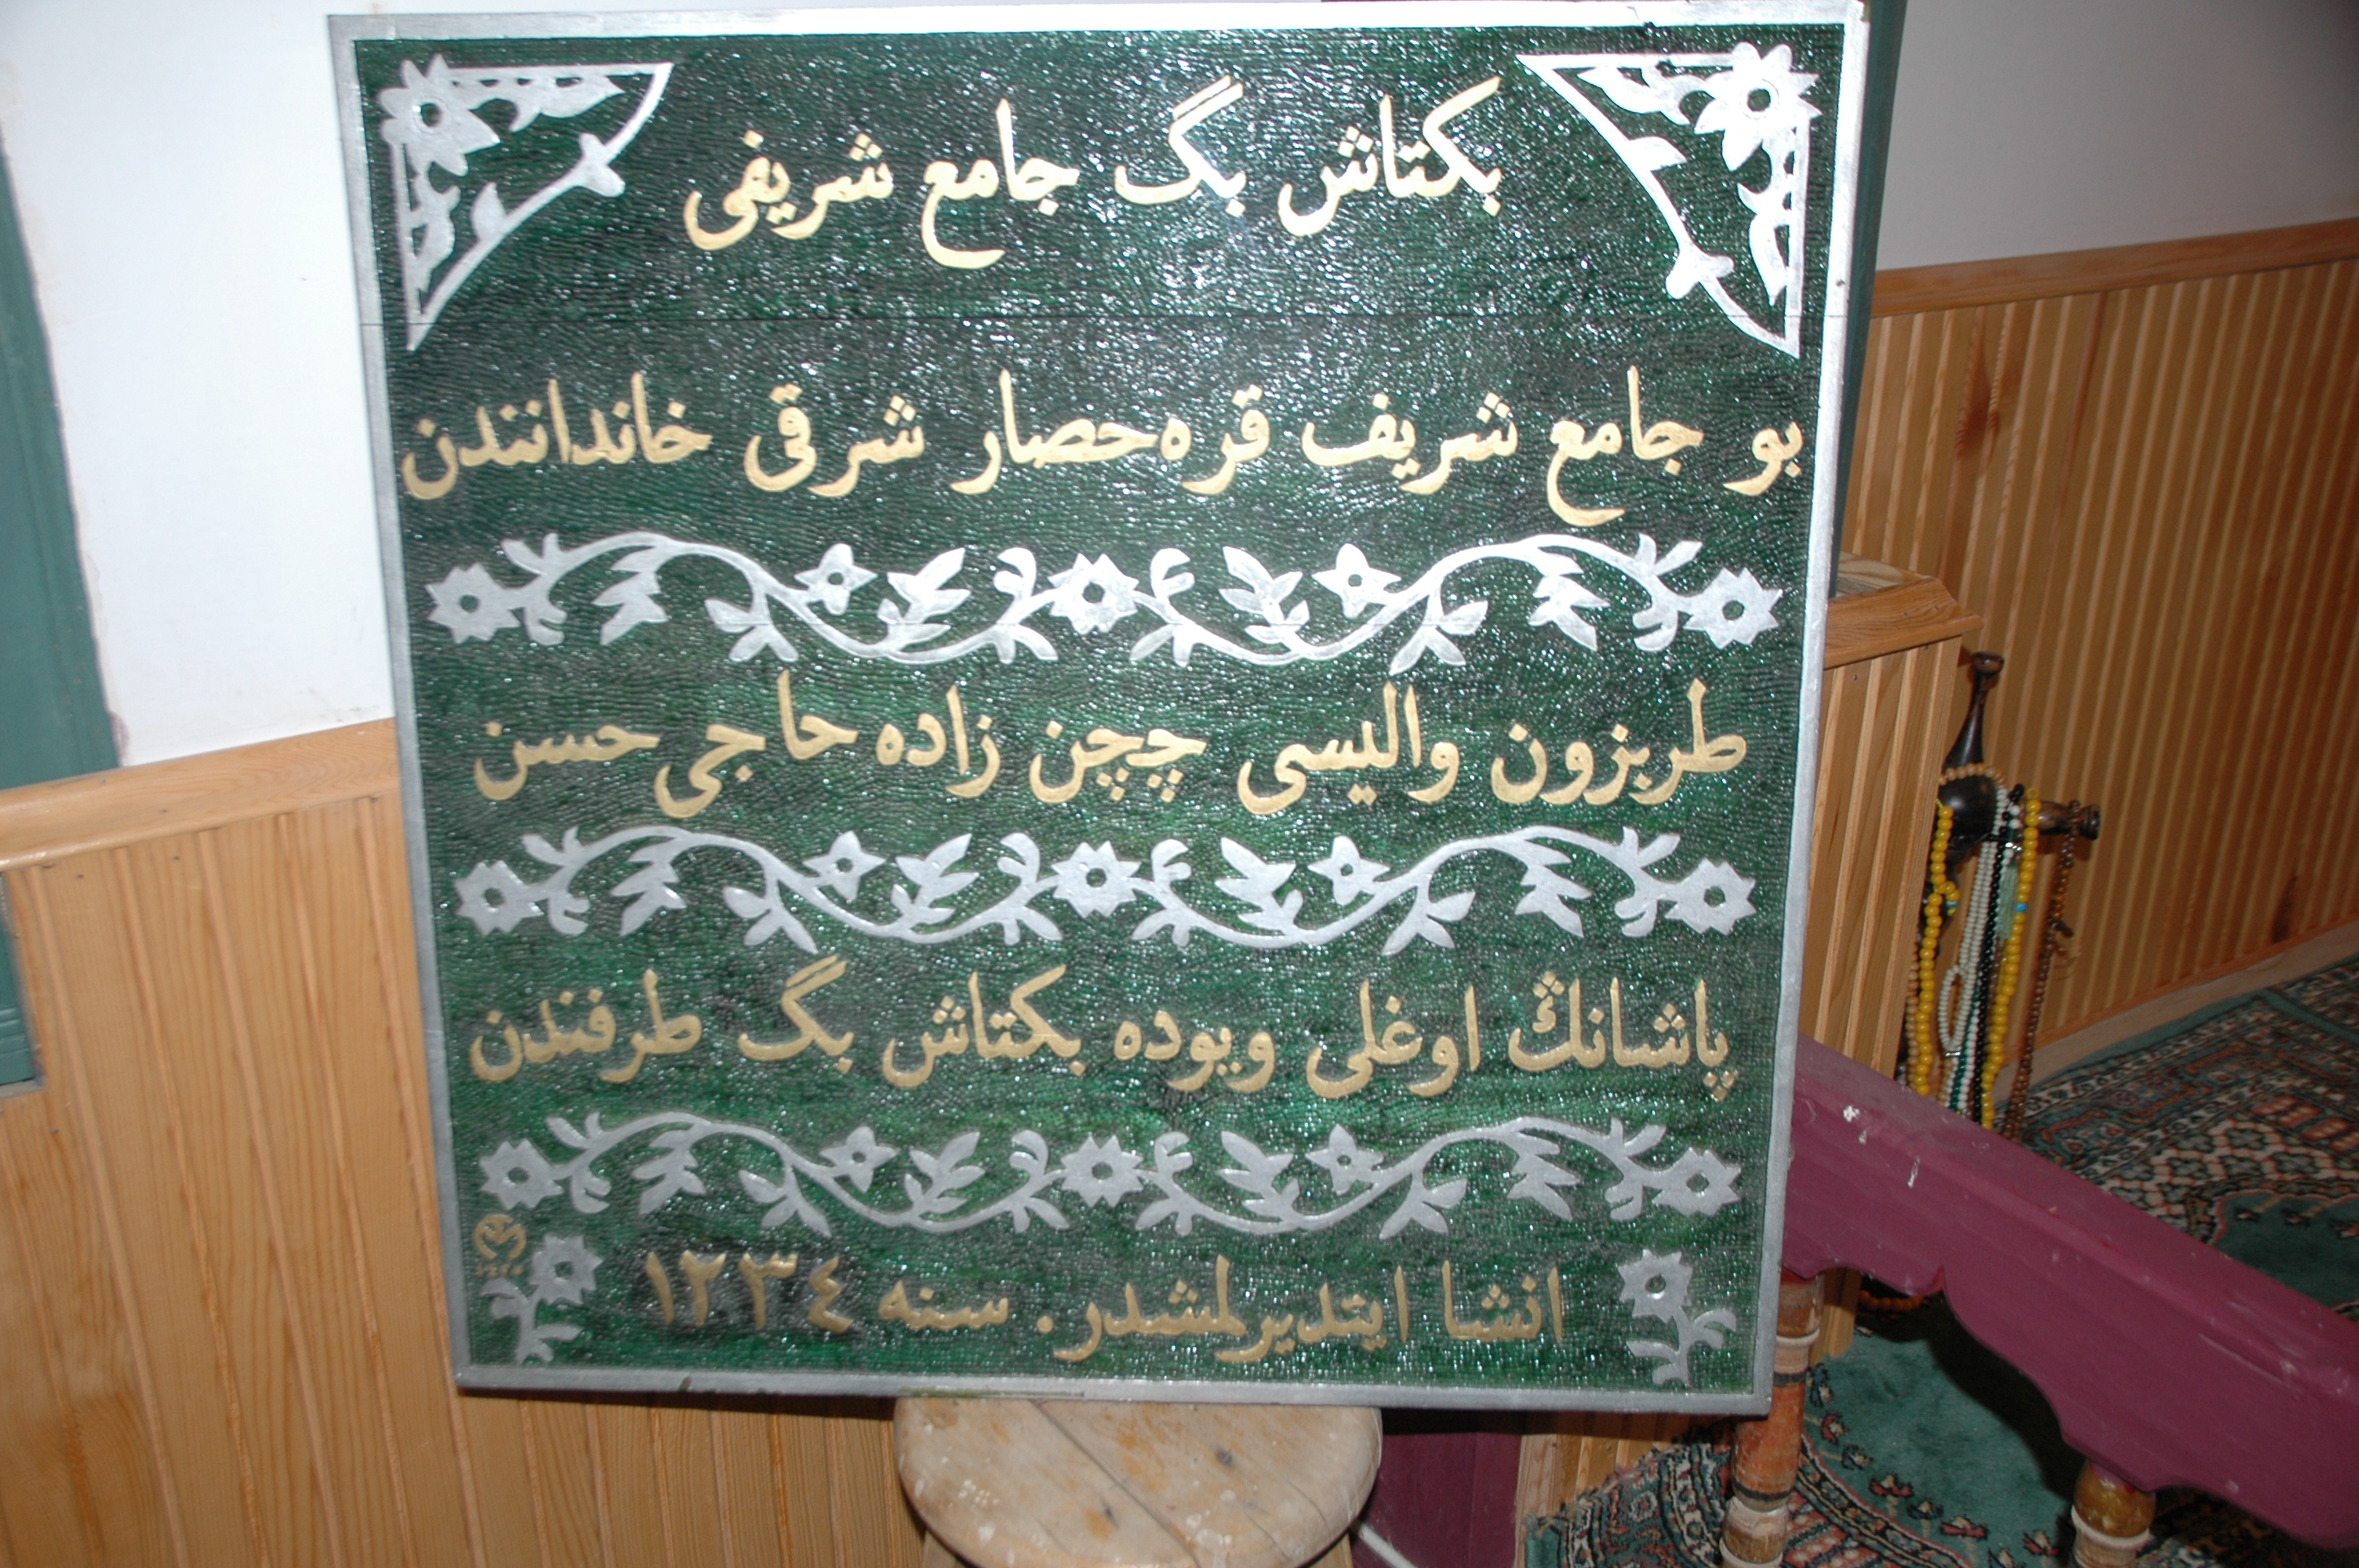 بكتاش بگ جامع شريفى
بو جامع شريف قره‌حصار شرقى خانداننندن
طربزون واليسى چچن زاده حاجى حسن
پاشانڭ اوغلى ويوده بكتاش بگ طرفندن
انشا ايتديرلمشدر. سنه ١٢٣٤